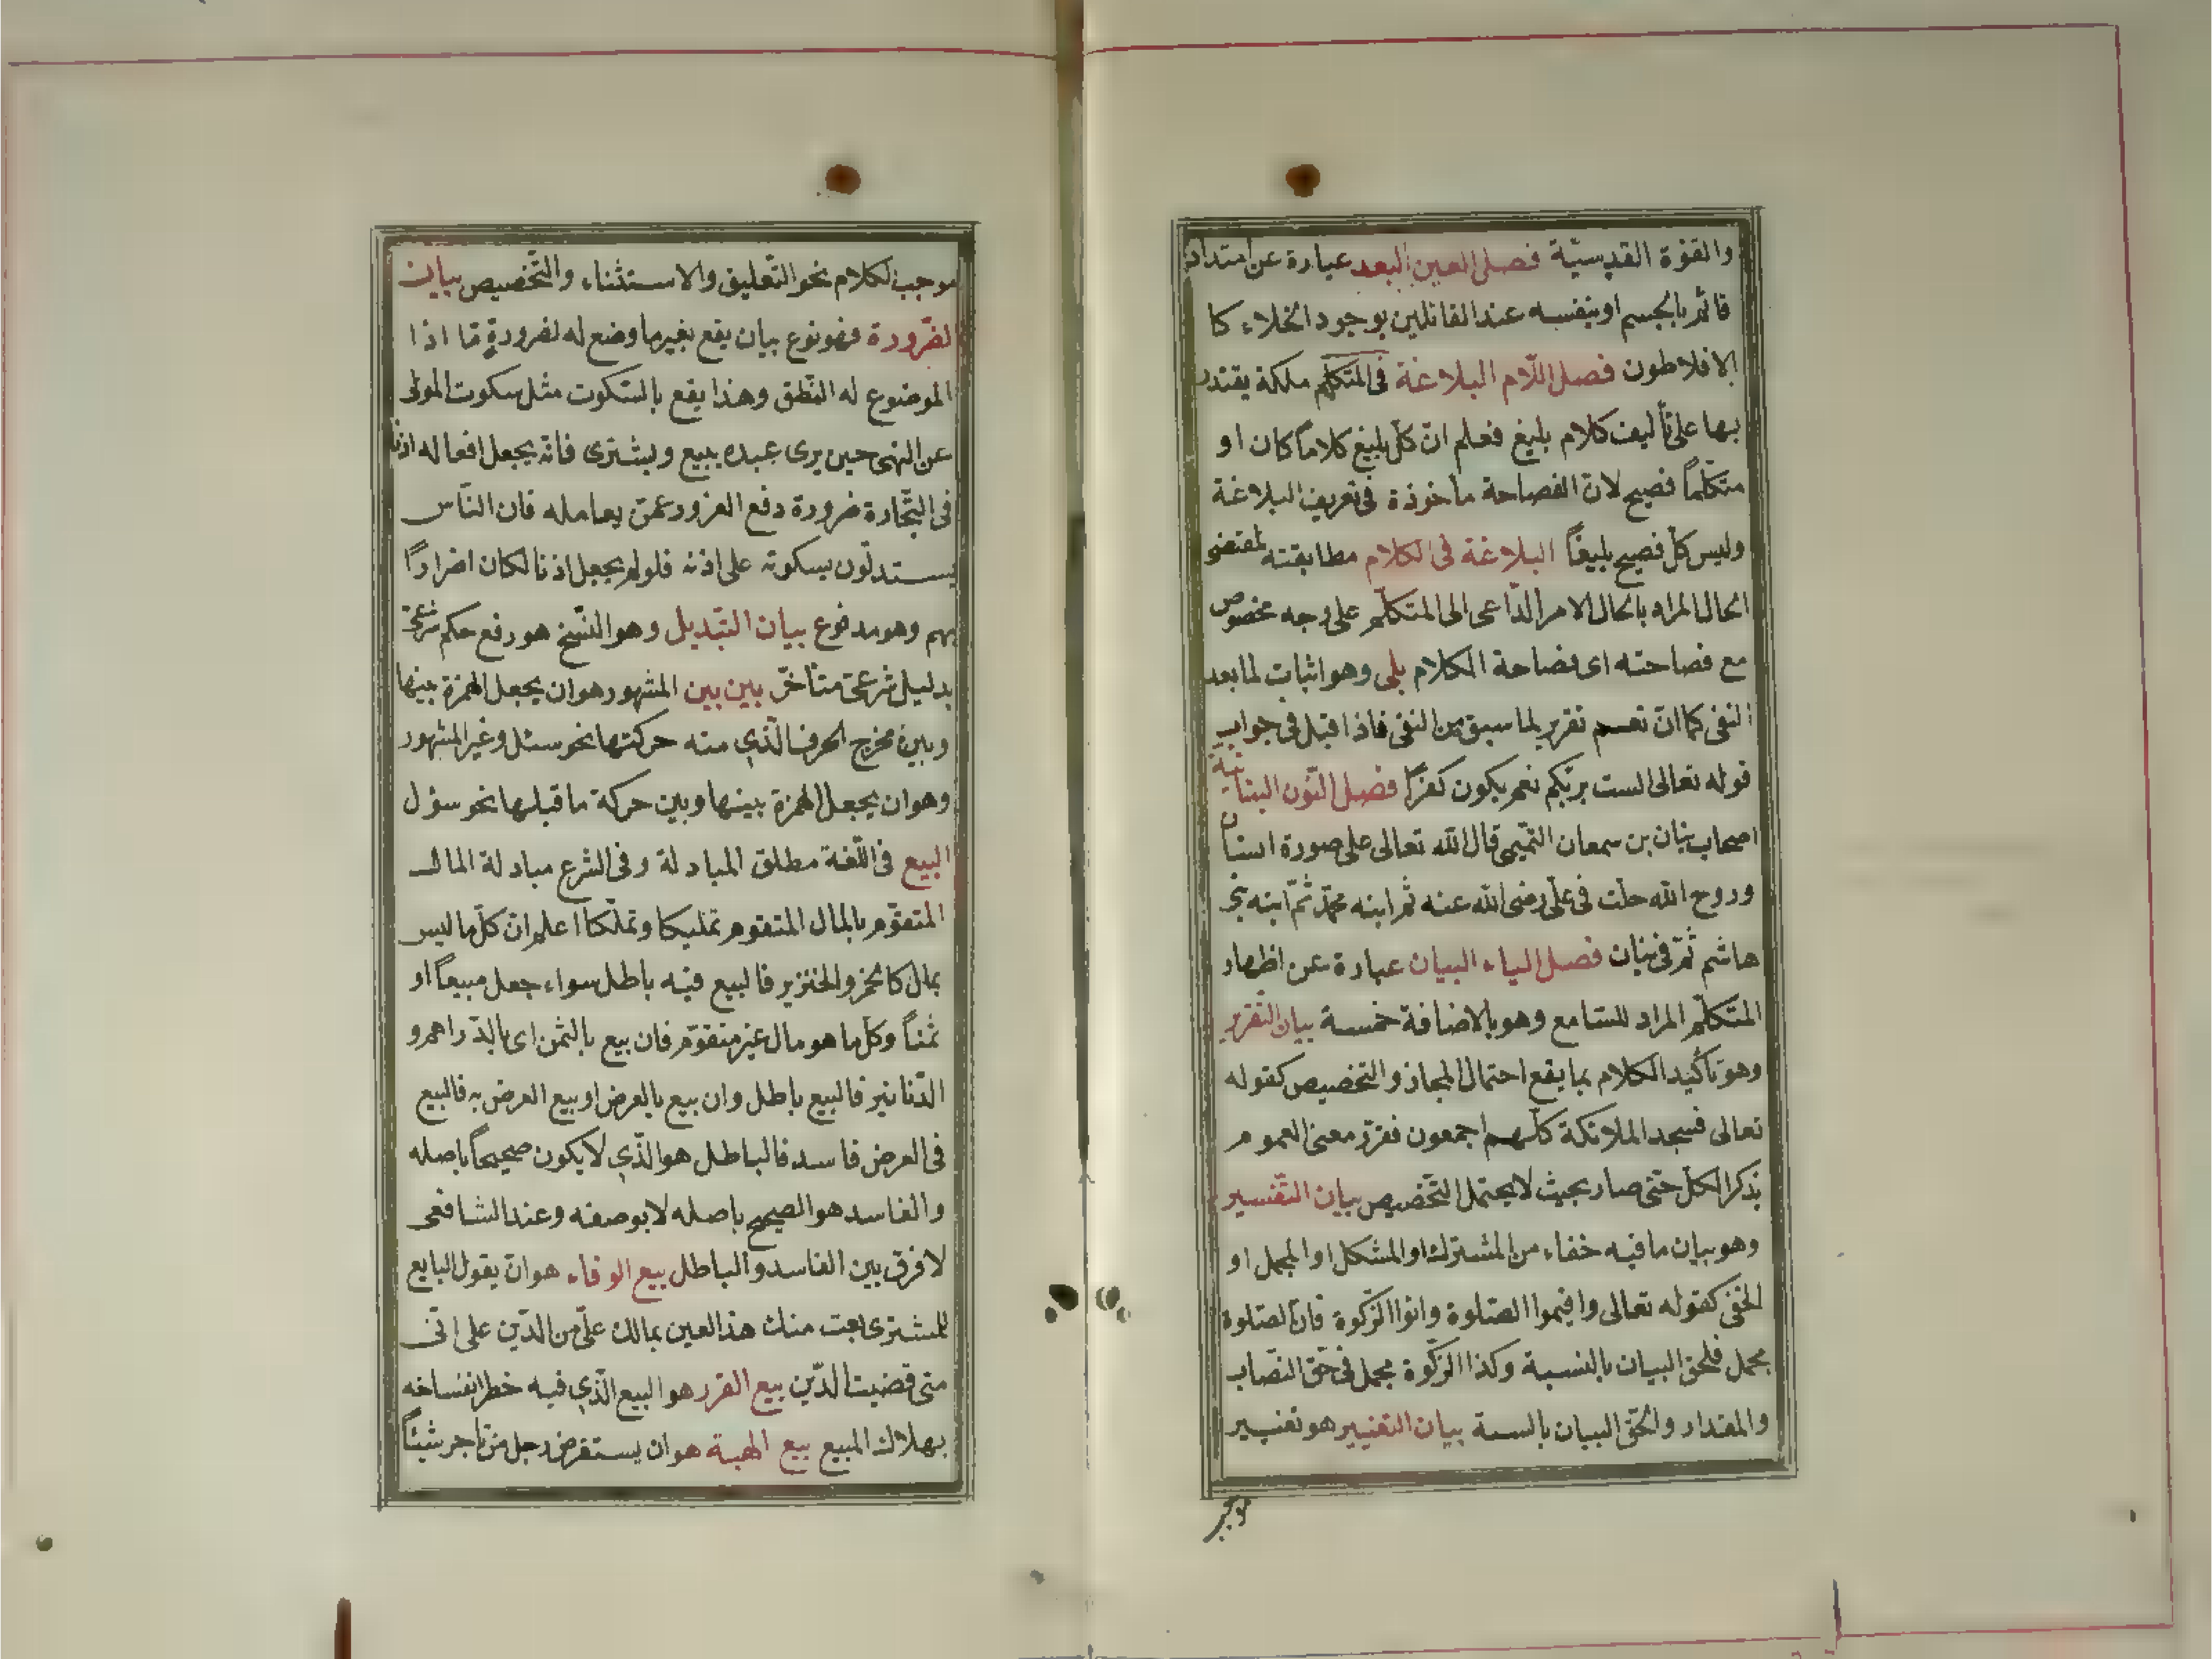 والقوة القدسيّة فصل العين البعد عبارة عن امتداد
قائم بالجسم او بنفسه عند القائلين بوجود الخلاء كا
الافلاطون فصل اللّام البلاغة فى المتكلّم ملكة يقتدر
بها على تأليف كلام بليغ فعلم انّ كلّ بليغ كلاماً كان او
متكلّماً فصيح لانّ الفصاحة مأخوذة فى تعريف البلاغة
وليس كلّ فصيح بليغاً البلاغة فى الكلام مطابقته لمقتضى
الحال المراد بالحال الامر الدّاعى الى المتكلّم على وجه مخصوص
مع فصاحته اى فصاحة الكلام بلى وهو اثبات لما بعد
النفى كما انّ نعم تقرير لما سبق من النفى فاذا قيل فى جواب
قوله تعالى الست بربّكم نعم يكون كفراً فصل النّون البنانية
اصحاب بنان بن سمعان التّميمى قال الله تعالى على صورة انسان
وروح الله حلّت فى علىّ رضى الله عنه ثم ابنه محمّد ثمّ ابنه بنى
هاشم ثمّ فى بنان فصل الياء البيان عبارة عن اظهار
المتكلّم المراد للسّامع وهو بالاضافة خمسة بيان التّقرير
وهو تأكيد الكلام بما يقع احتمال المجاز والتخصيص كقوله
تعالى فسجد الملائكة كلّهم اجمعون فقرّر معنى العموم
بذكر الكلّ حتى صار بحيث لا يحتمل التّخصيص بيان التّفسير
وهو بيان ما فيه خفاء من المشترك او المشكل او المجمل او
الخفى كقوله تعالى واقيموا الصّلوة واتوا الزّكوة فانّ الصّلوة
مجمل فلحق البيان بالنسبة وكذا الزّكوة مجمل فى حقّ النّصاب
والمقدار والحق البيان بالسنة بيان التغيير هو تغيير
موجب
موجب الكلام نحو التّعليق والاستثناء والتّخصيص بيان
الضّرورة فهو نوع بيان يقع بغير ما وضع له لضرورةٍ مّا اذا
الموضوع له النّطق وهذا يقع بالسّكوت مثل سكوت المولى
عن النهى حين يرى عبده يبيع ويشترى فانّه يجعل افعاله اذنا
فى التّجارة ضرورة دفع الغرور عمّن يعامله فان النّاس
يستدلّون بسكوته على اذنه فلو لم يجعل اذنا لكان اضراراً
بهم وهو مدفوع بيان التّبديل وهو النّسخ هو رفع حكم شرعىّ
بدليل شرعىّ متأخّر بين بين المشهور هو ان يجعل الهمزة بينها
وبين مخرج الحرف الّذى منه حركتها نحو سئل وغير المشهور
وهو ان يجعل الهمزة بينها وبين حركة ما قبلها نحو سؤل
البيع فى اللّغة مطلق المبادلة وفى الشرع مبادلة المال
المتقوّم بالمال المتقوم تمليكا وتملّكا اعلم انّ كلّ ما ليس
بمال كالخمر والخنزير فالبيع فيه باطل سواء جعل مبيعاً او
ثمناً وكلّ ما هو مال غير متقوّم فان بيع بالثمن اى بالدّراهم و
الدّنانير فالبيع باطل وان بيع بالعرض او بيع العرض به فالبيع
فى العرض فاسد فالباطل هو الّذى لا يكون صحيحاً باصله
والفاسد هو الصحيح باصله لا بوصفه وعند الشافعى
لا فرق بين الفاسد والباطل بيع الوفاء هو ان يقول البايع
للمشترى بعت منك هذا العين بمالك علىّ من الدّين على انّى
متى قضيت الدّين بيع الغرر هو البيع الّذى فيه خطر انفساخه
بهلاك المبيع بيع الهبة هو ان يستقرض رجل من تاجر شيئاً